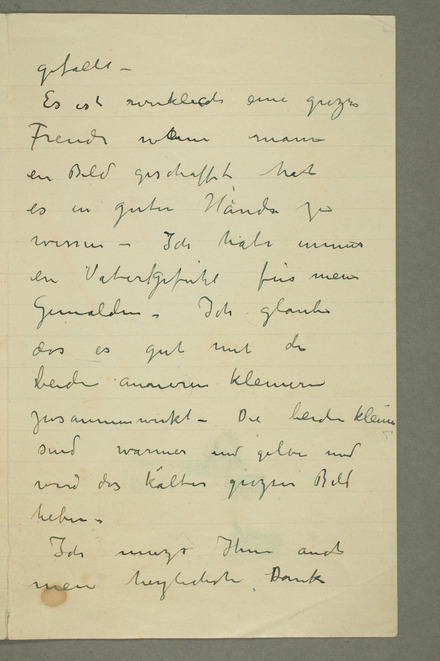 gefällt –
Es ist wirklich eine grozse
Freude wenn mann
ein Bild geschafft hat
es in guten Hände zu
wissen – Ich habe immer
ein Vatertgefühl für meine
Gemalden. Ich glaube
das es gut mit die
beide anderen kleinern
zusammenwirkt – Die beide kleine
sind warmer und gelber und
wird das kälter grozser Bild
heben.
Ich muzs Ihnen auch
mein herzlichste Dank